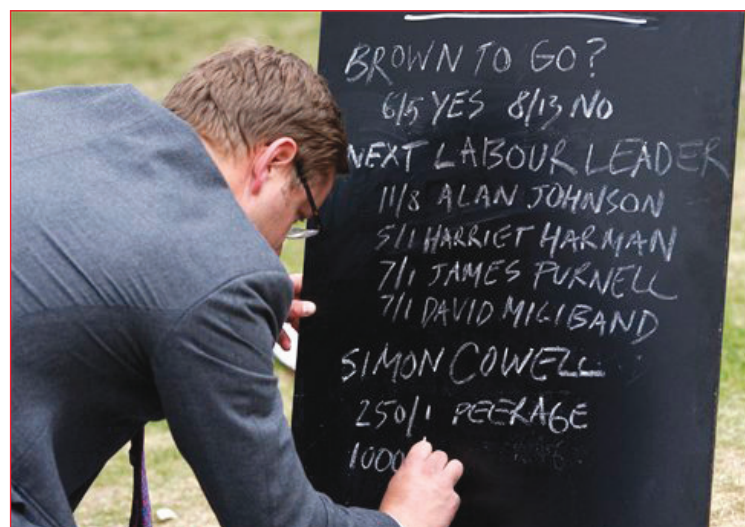 BROWN TO GO?
6/5 YES 8/13 NO
NEXT LABOUR LEADER
11/8 ALAN JOHNSON
5/1 HARRIET HARMAN
7/1 JAMES PURNELL
7/1 DAVID MILIBAND
SIMON COWELL
250/1 PEERAGE
1000